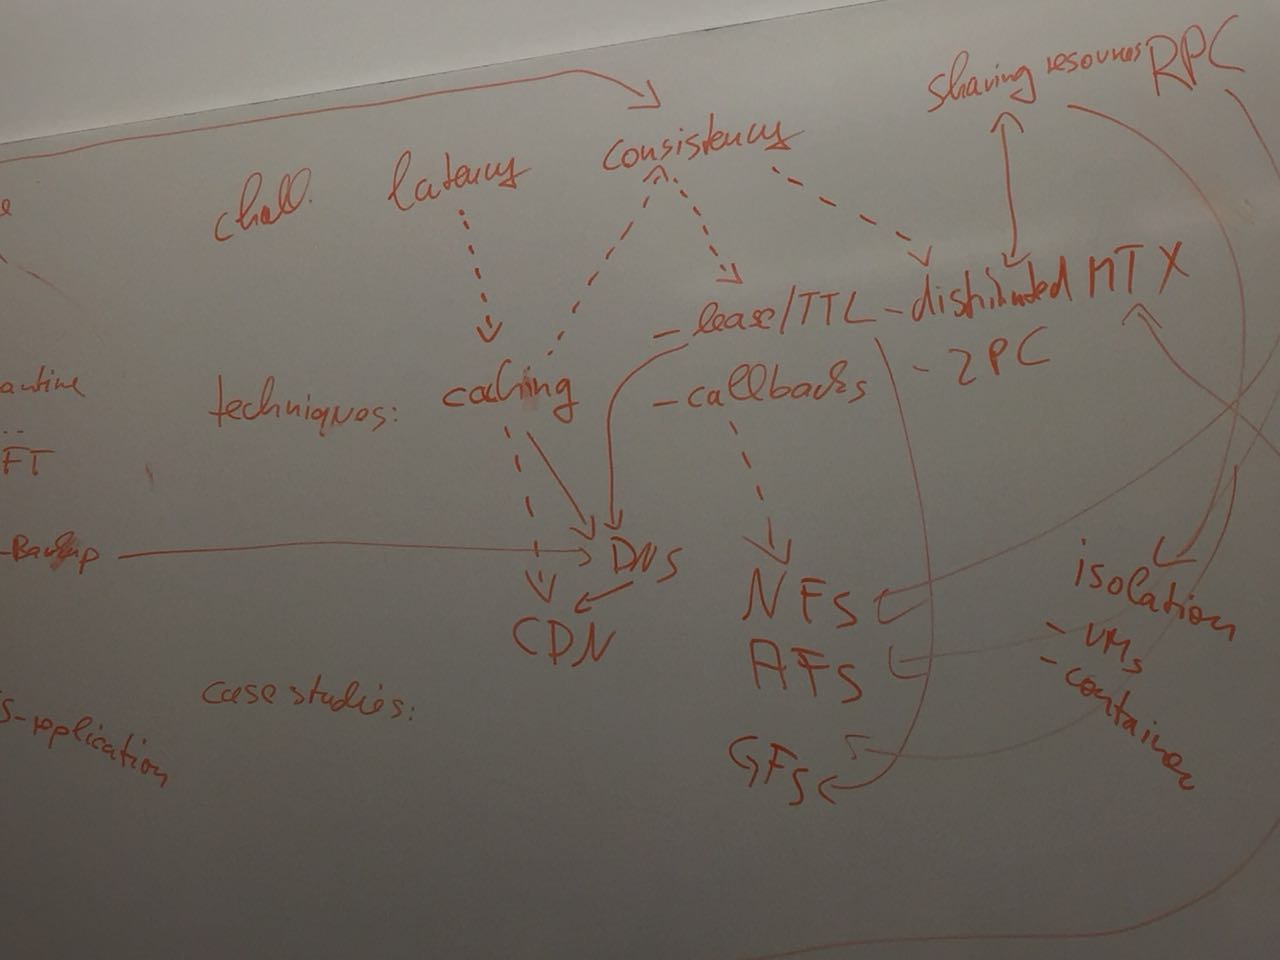 sharing resources RPC
chall. latency consistency
- lease/TTL - distributed MTX
techniques: caching - callbacks - 2PC
FT
-Backup
DNS
NFS
isolation
CDN
AFS
- VMs
- container
case studies:
S-replication
GFS